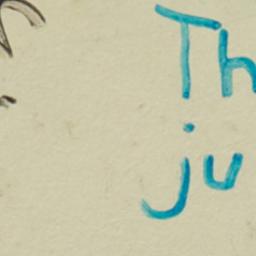 Th
ju